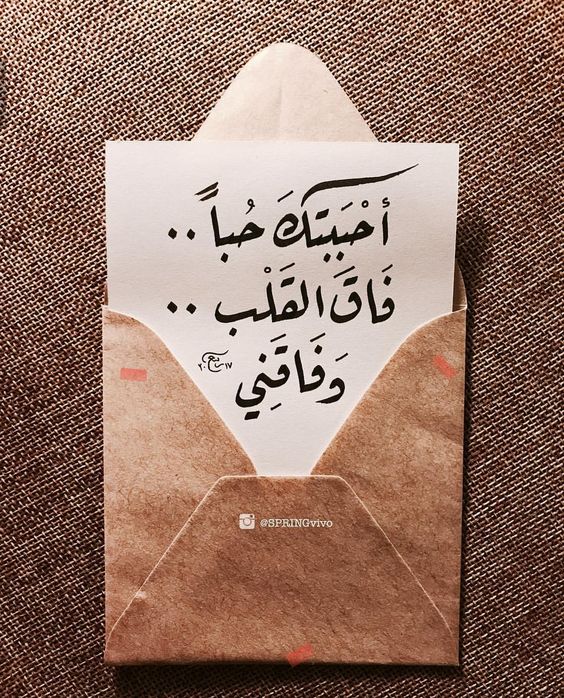 أحْبَبتكَ حُباً ..
فَاقَ القَلْب ..
وَفَاقَنِي
٢٠١٧
@SPRINGvivo